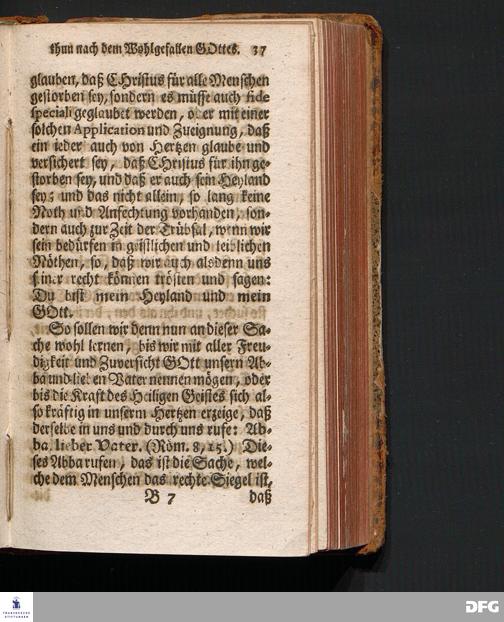 thun nach dem Wohlgefallen GOttes. 37
glauben, daß CHristus für alle Menschen
gestorben sey, sondern es müsse auch fide
speciali geglaubet werden, oder mit einer
solchen Application und Zueignung, daß
ein ieder auch von Hertzen glaube und
versichert sey, daß CHristus für ihn ge-
storben sey, und daß er auch sein Heyland
sey; und das nicht allein, so lang keine
Noth und Anfechtung vorhanden, son-
dern auch zur Zeit der Trübsal, wenn wir
sein bedürfen in geistlichen und leiblichen
Nöthen, so, daß wir auch alsdenn uns
seiner recht können trösten und sagen:
Du bist mein Heyland und mein
GOtt.
So sollen wir denn nun an dieser Sa-
che wohl lernen, bis wir mit aller Freu-
digkeit und Zuversicht GOtt unsern Ab-
ba und lieben Vater nennen mögen, oder
bis die Kraft des Heiligen Geistes sich al-
so kräftig in unsern Hertzen erzeige, daß
derselbe in uns und durch uns rufe: Ab-
ba, lieber Vater. (Röm. 8, 15.) Die-
ses Abba rufen, das ist die Sache, wel-
che dem Menschen das rechte Siegel ist,
B 7 daß
FRANCKESCHE STIFTUNGEN
DFG